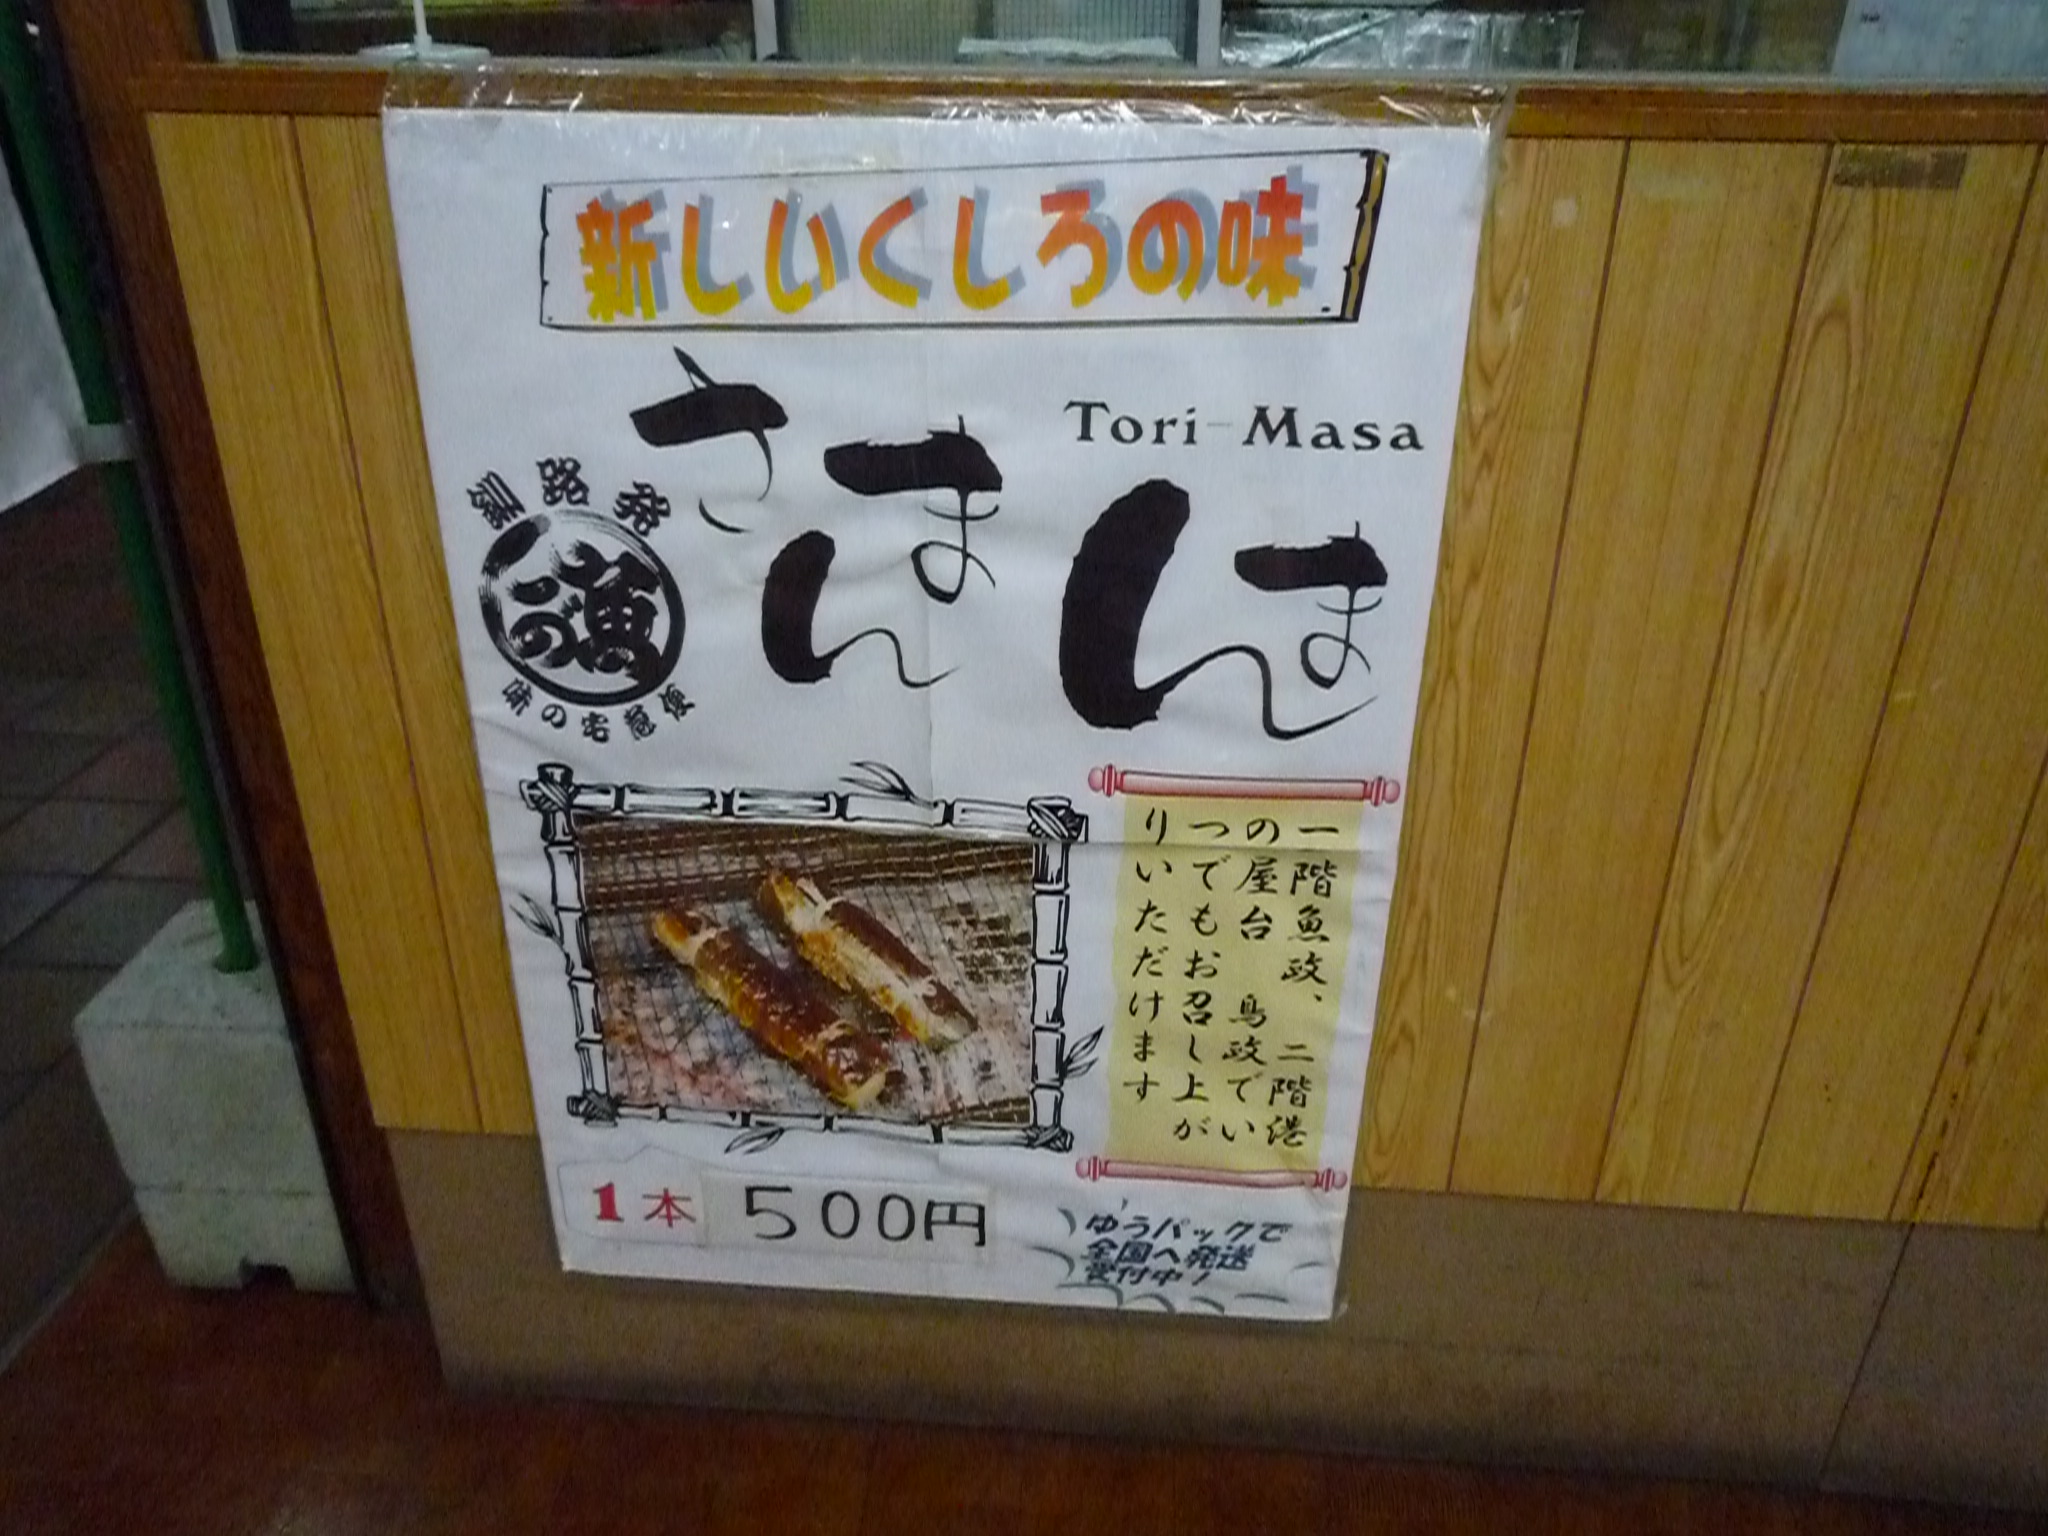 新しいくしろの味
Tori-Masa
さんまんま
釧路発
味の宅急便
一階魚政、二階港
の屋台 鳥政でい
つでもお召し上が
りいただけます
1本 500円
ゆうパックで
全国へ発送
受付中!